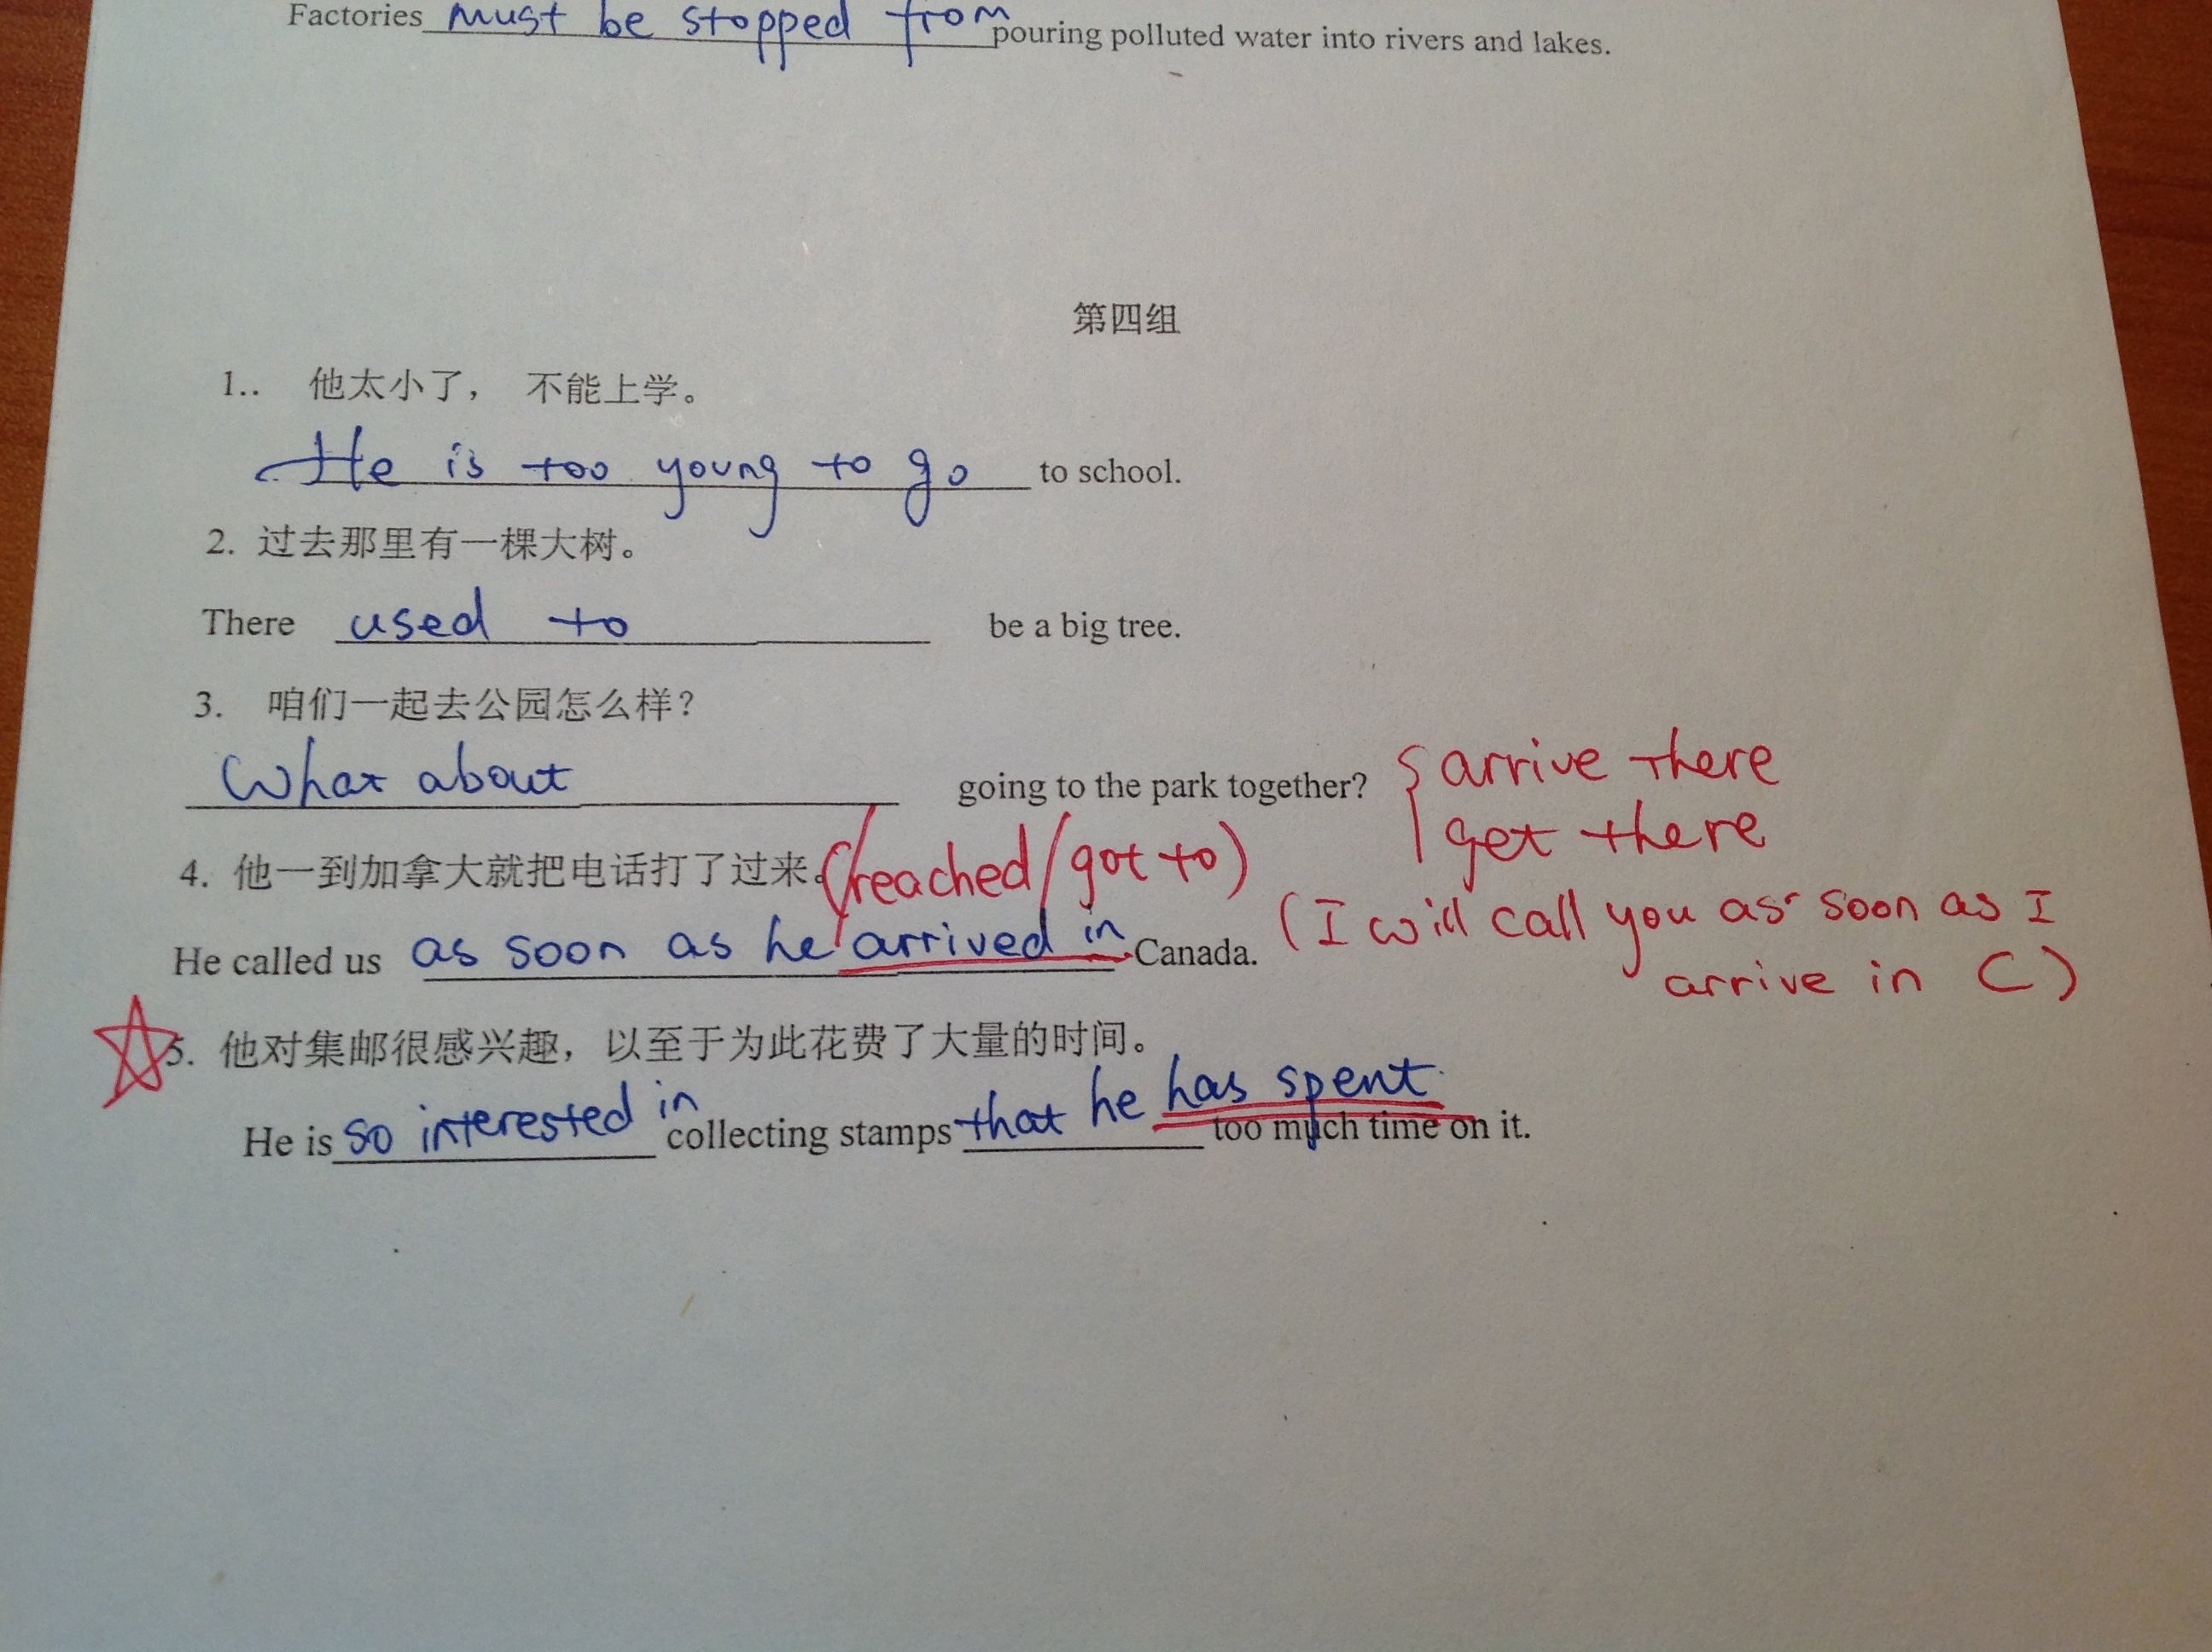 Factories must be stopped from pouring polluted water into rivers and lakes.
第四组
1.. 他太小了， 不能上学。
He is too young to go to school.
2. 过去那里有一棵大树。
There used to be a big tree.
3. 咱们一起去公园怎么样?
What about going to the park together?
arrive there
get there
4. 他一到加拿大就把电话打了过来。
(reached/got to)
He called us as soon as he arrived in Canada.
(I will call you as soon as I
arrive in C)
5. 他对集邮很感兴趣，以至于为此花费了大量的时间。
He is so interested in collecting stamps that he has spent too much time on it.